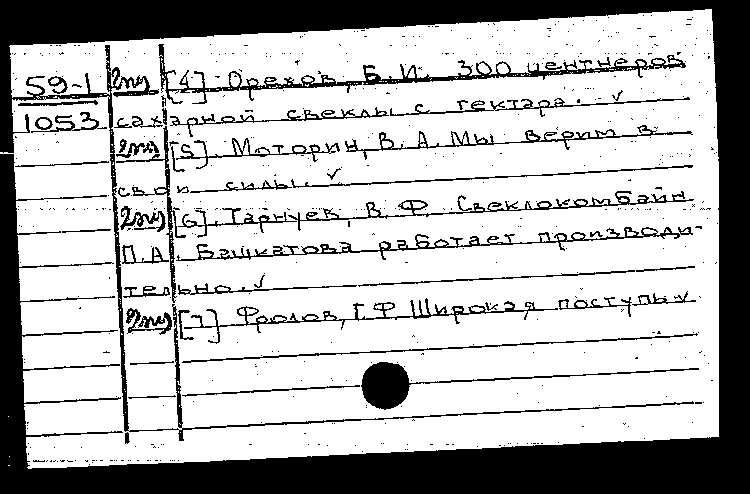 59-1 [4] Орехов, Б.И. 300 центнеров
1053 сахарной свеклы с гектара. ✓
[5]. Моторин, В. А. Мы верим в
свои силы. ✓
[6]. Гарнуек, В. Ф. Свеклокомбайн
П.А. Башкатова работает производи-
тельно. ✓
[7] Фролов, Г. Ф. Широкая поступь ✓